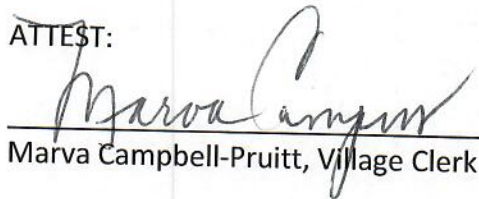 ATTEST:
Marva Camp
Marva Campbell-Pruitt, Village Clerk